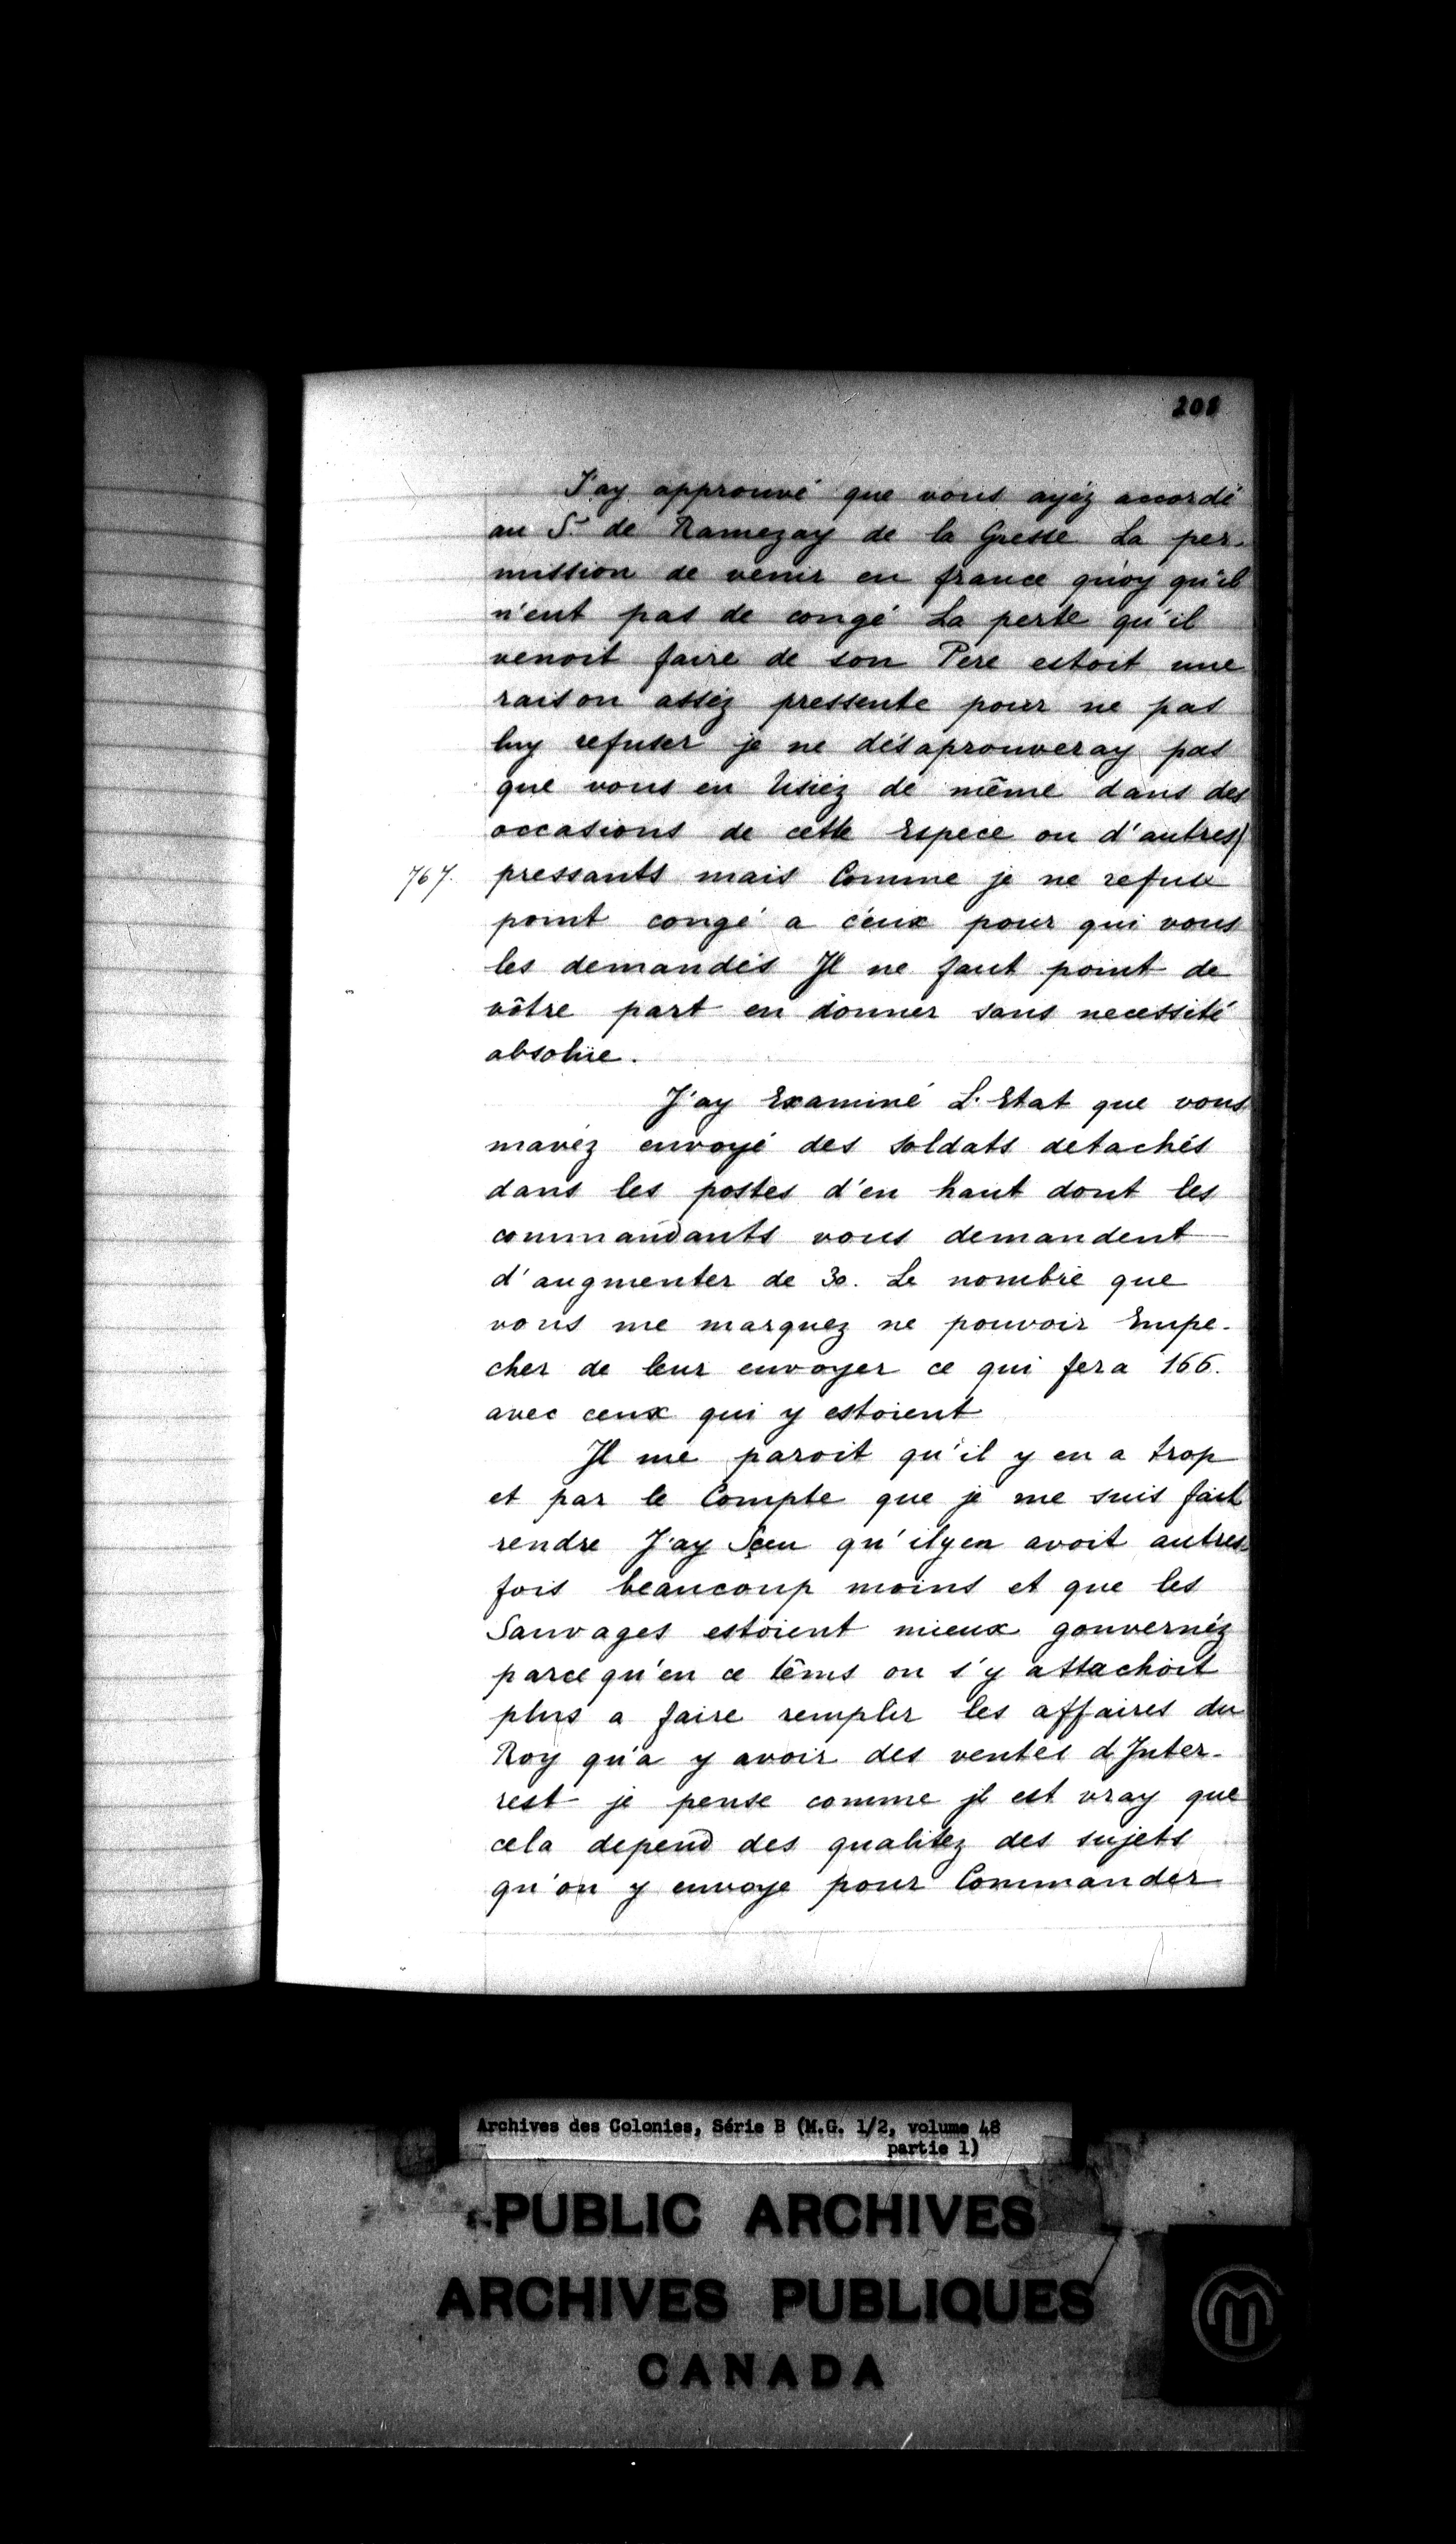 208
J'ay approuvé que vous ayéz accordé
au Sr. de Ramezay de la Gresse La per-
mission de venir en france quoy qu'il
n'eut pas de congé La perte qu'il
venoit faire de son Pere estoit une
raison asséz pressente pour ne pas
luy refuser je ne désaprouveray pas
que vous en Usiez de même dans des
occasions de cette Espece ou d'autres
767. pressants mais Comme je ne refuse
point congé a ceux pour qui vous
les demandés Il ne faut point de
vôtre part en donner sans necessité
absolüe.
J'ay Examiné L'Etat que vous
mavéz envoyé des soldats detachés
dans les postes d'en haut dont les
commandants vous demandent
d'augmenter de 30. Le nombre que
vous me marquez ne pouvoir Empe-
cher de leur envoyer ce qui fera 166.
avec ceux qui y estoient
Il me paroit qu'il y en a trop
et par le Compte que je me suis fait
rendre J'ay Sçeu qu'ilyen avoit autres-
fois beaucoup moins et que les
Sauvages estoient mieux gouvernéz
parcequ'en ce têms on s'y attachoit
plus a faire remplir les affaires du
Roy qu'a y avoir des ventes d'Inter-
rest je pense comme jl est vray que
cela depend des qualitez des sujets
qu'on y envoye pour Commander
Archives des Colonies, Série B (M.G. 1/2, volume 48
partie 1)
PUBLIC ARCHIVES
ARCHIVES PUBLIQUES
CANADA